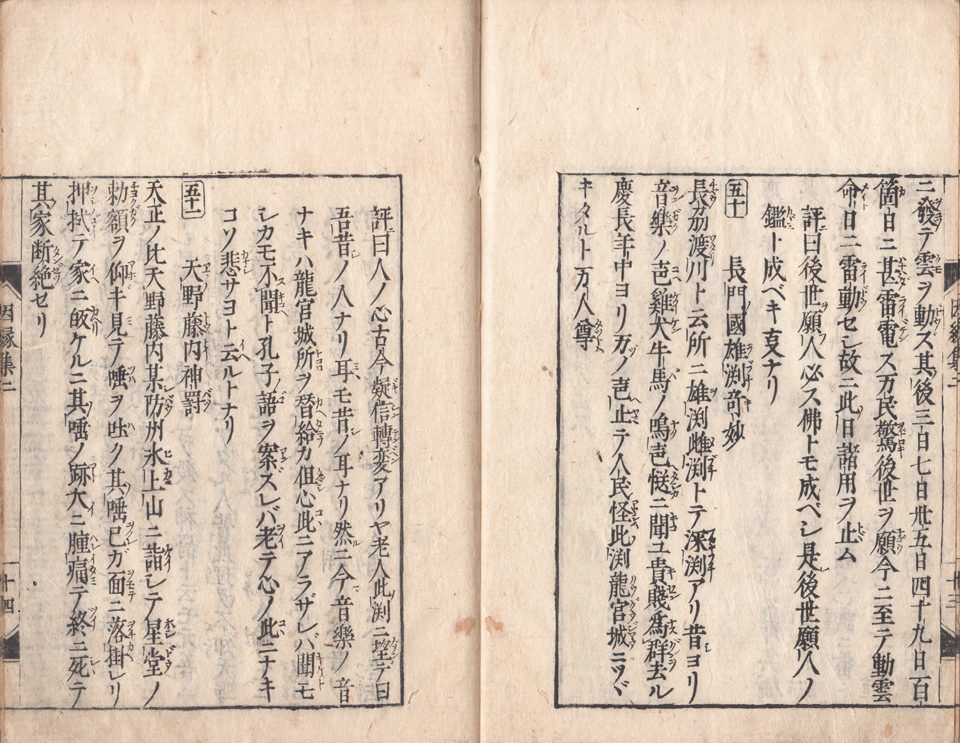 ニ發テ雲ヲ動ス其後三日七日卅五日四十九日百
箇日ニ甚雷電ス万民驚後世ヲ願今ニ至テ動雲
命日ニ雷動セシ故ニ此日諸用ヲ止ム
評曰後世願人必ス佛トモ成ベシ是後世願人ノ
鑑ト成ベキ叓ナリ
五十 長門國雄渕奇妙
長刕渡川ト云所ニ雄渕雌渕トテ深渕アリ昔ヨリ
音樂ノ声雞犬牛馬ノ鳴声慥ニ聞ユ貴賤爲群去ル
慶長年中ヨリ万ノ声止テ人民怪此渕龍宮城ニマヾ
キタルト万人尊
評曰人ノ心古今疑信轉変アリヤ老人此渕ニ望テ曰
吾昔ノ人ナリ耳モ昔ノ耳ナリ然ニ今音樂ノ音
ナキハ龍宮城所ヲ替給カ但心此ニアラザレバ聞モ
レカモ不聞ト孔子語ヲ案ズレバ老テ心ノ此ニナキ
コソ悲サヨト云ルトナリ
五十一 天野藤内神罰
天正ノ比天野藤内某防州氷上山ニ詣シテ星堂ノ
勅額ヲ仰キ見テ唾ヲ吐ク其唾己ガ面ニ落掛レリ
押拭テ家ニ皈ケルニ其唾ノ跡大ニ腫痛テ終ニ死テ
其家断絶セリ
因縁集二
十三
因縁集二
十四